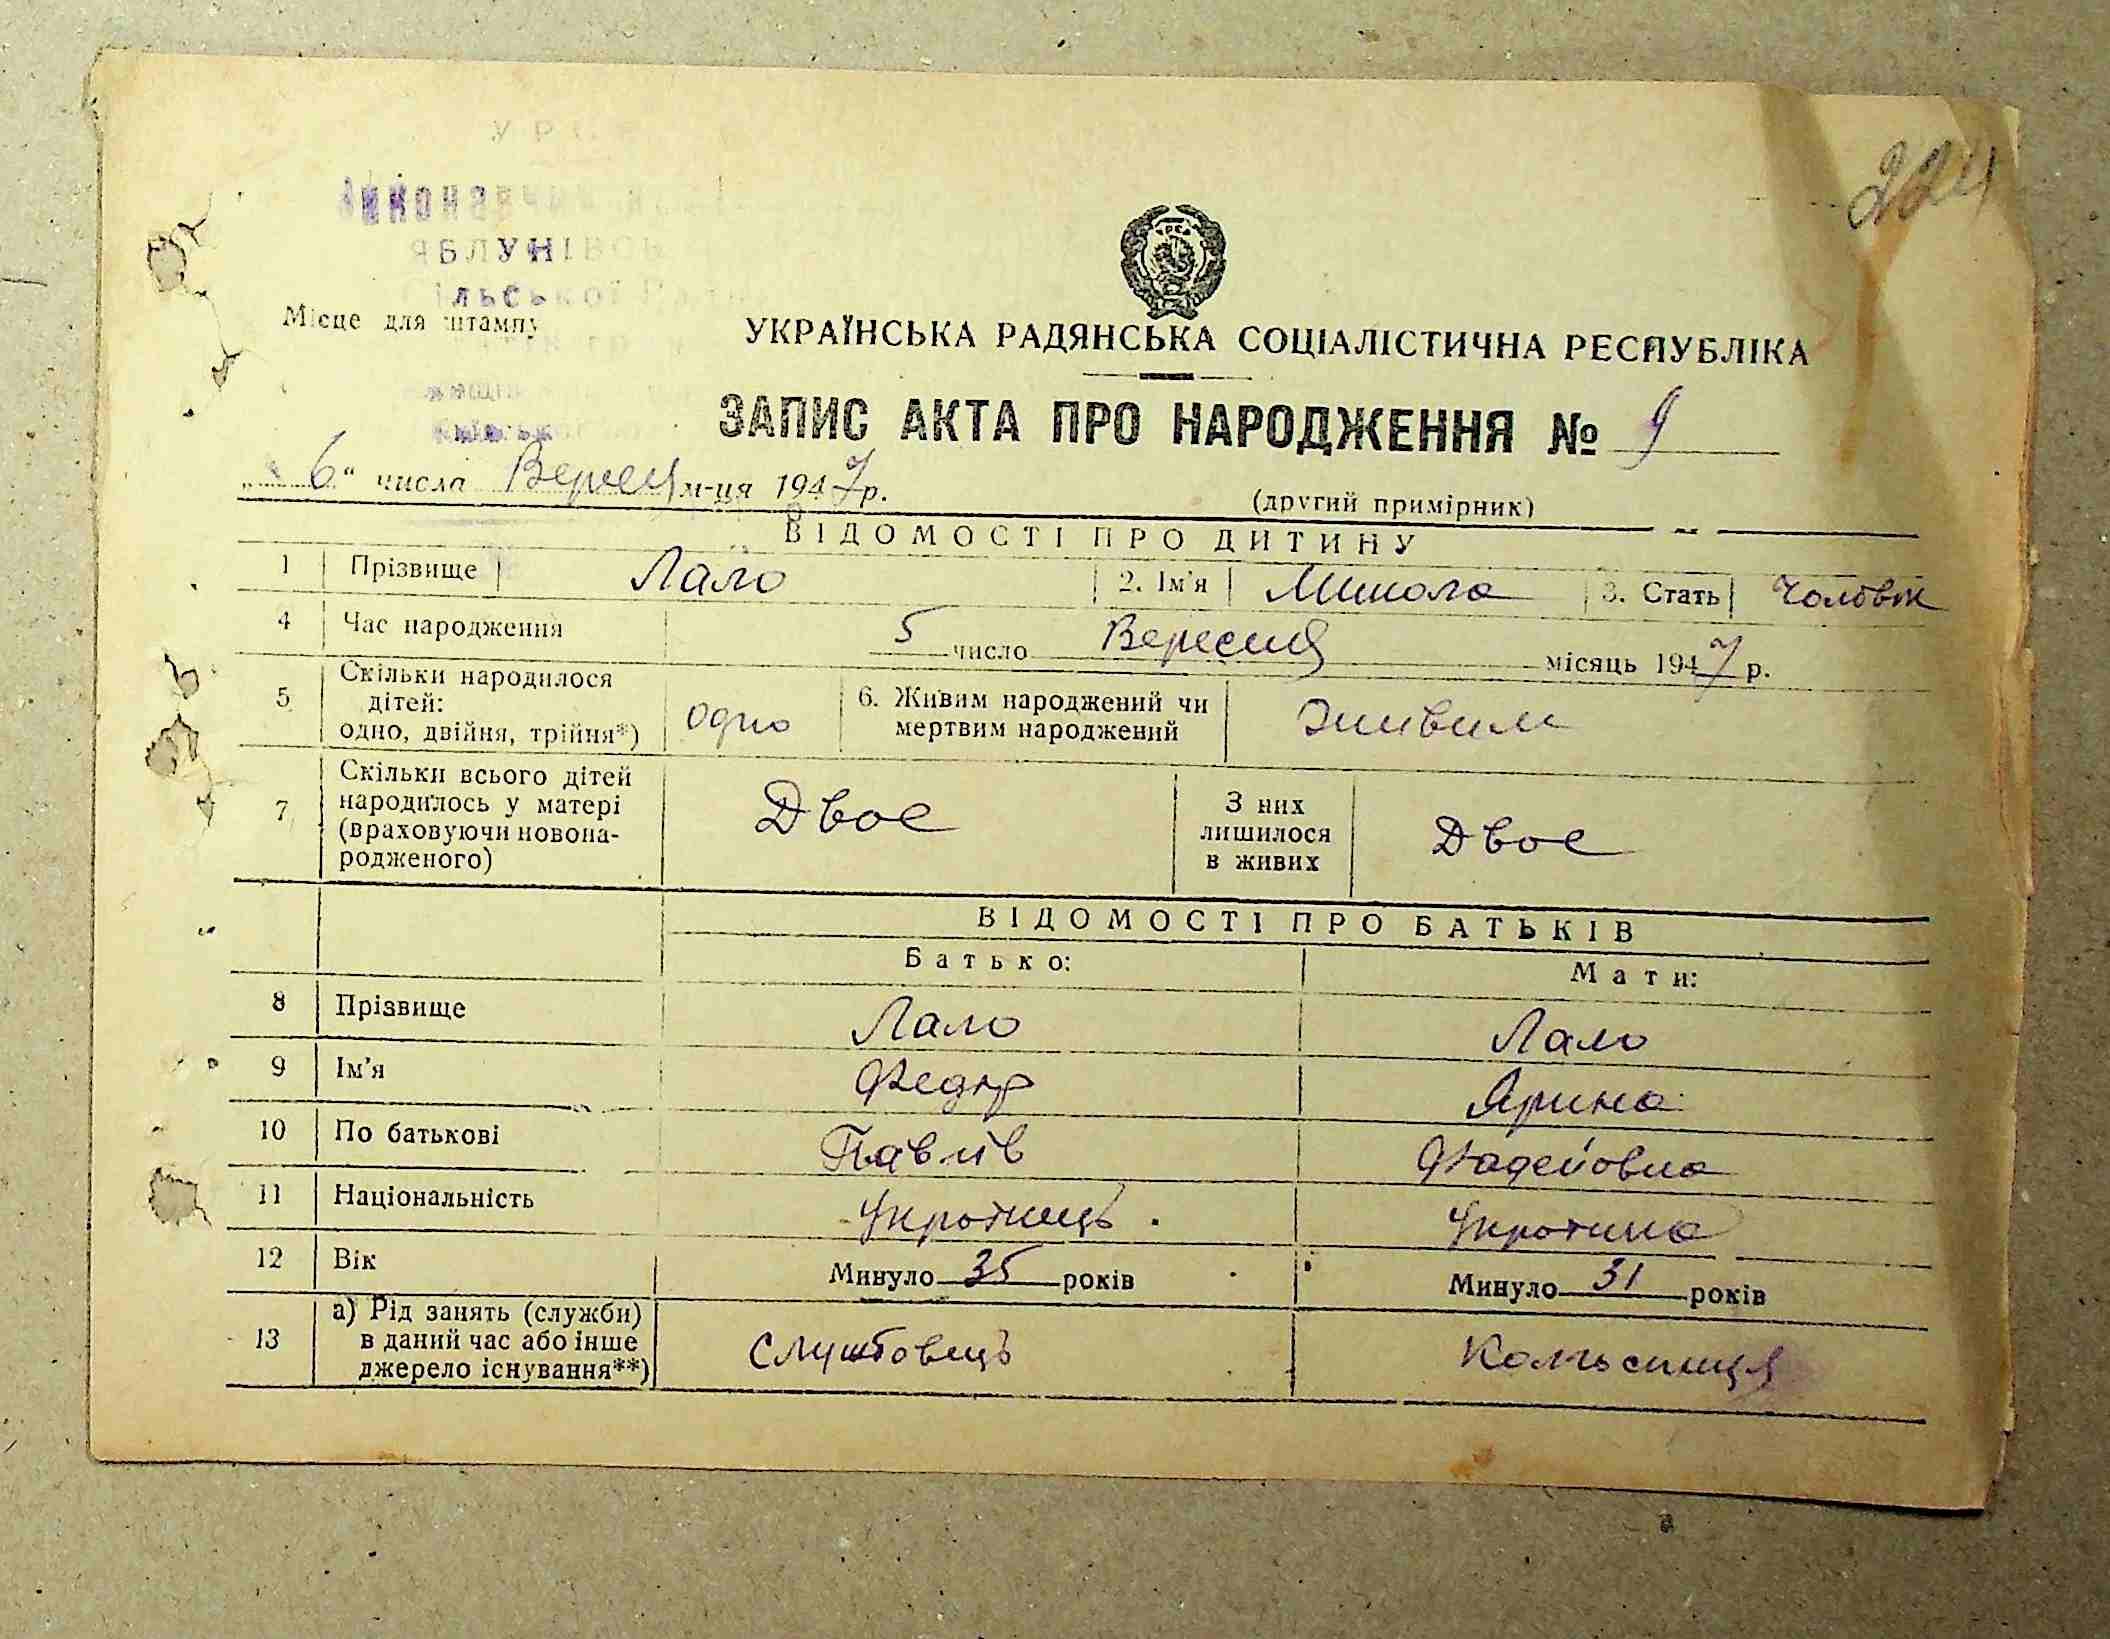 УРС
Виконавчий к
ЯБЛУНІВСЬ
Сільської Рад
Місце для штампу
224
УКРАЇНСЬКА РАДЯНСЬКА СОЦІАЛІСТИЧНА РЕСПУБЛІКА
ЗАПИС АКТА ПРО НАРОДЖЕННЯ № 9
„6“ числа Вересня м-ця 1947 р.
(другий примірник)
ВІДОМОСТІ ПРО ДИТИНУ
1 Прізвище Лало 2. Ім'я Микола 3. Стать Чоловік
4 Час народження 5 число Вересня місяць 1947 р.
5 Скільки народилося дітей: одно, двійня, трійня*) одно 6. Живим народжений чи мертвим народжений Живим
7 Скільки всього дітей народилось у матері (враховуючи новонародженого) Двое З них лишилося в живих Двое
ВІДОМОСТІ ПРО БАТЬКІВ
Батько: Мати:
8 Прізвище Лало Лало
9 Ім'я Федір Ярина
10 По батькові Павлів Фадейовна
11 Національність Українець Українка
12 Вік Минуло 35 років Минуло 31 років
13 а) Рід занять (служби) в даний час або інше джерело існування**) Службовець Колгоспниця